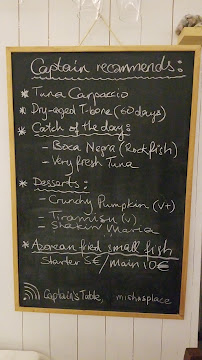 Captain recommends:
* Tuna Carpaccio
* Dry-aged T-bone (60 days)
* Catch of the day:
- Boca Negra (Rockfish)
- Very fresh Tuna
* Desserts:
- Crunchy Pumpkin (V+)
- Tiramisu (v)
- Shakin' Maria
* Azorean fried small fish
Starter 5€/Main 10€
Captain's Table, mishasplace